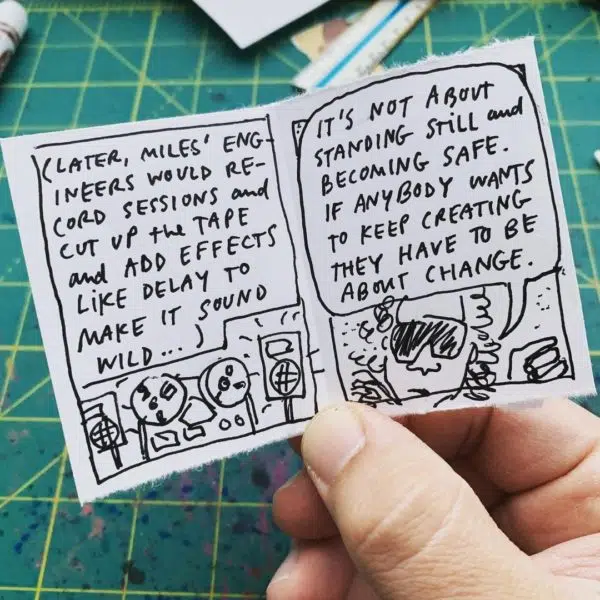 (LATER, MILES' ENG-
INEERS WOULD RE-
CORD SESSIONS and
CUT UP the TAPE
and ADD EFFECTS
LIKE DELAY TO
MAKE IT SOUND
WILD...)
IT'S NOT ABOUT
STANDING STILL and
BECOMING SAFE.
IF ANYBODY WANTS
TO KEEP CREATING
THEY HAVE TO BE
ABOUT CHANGE.